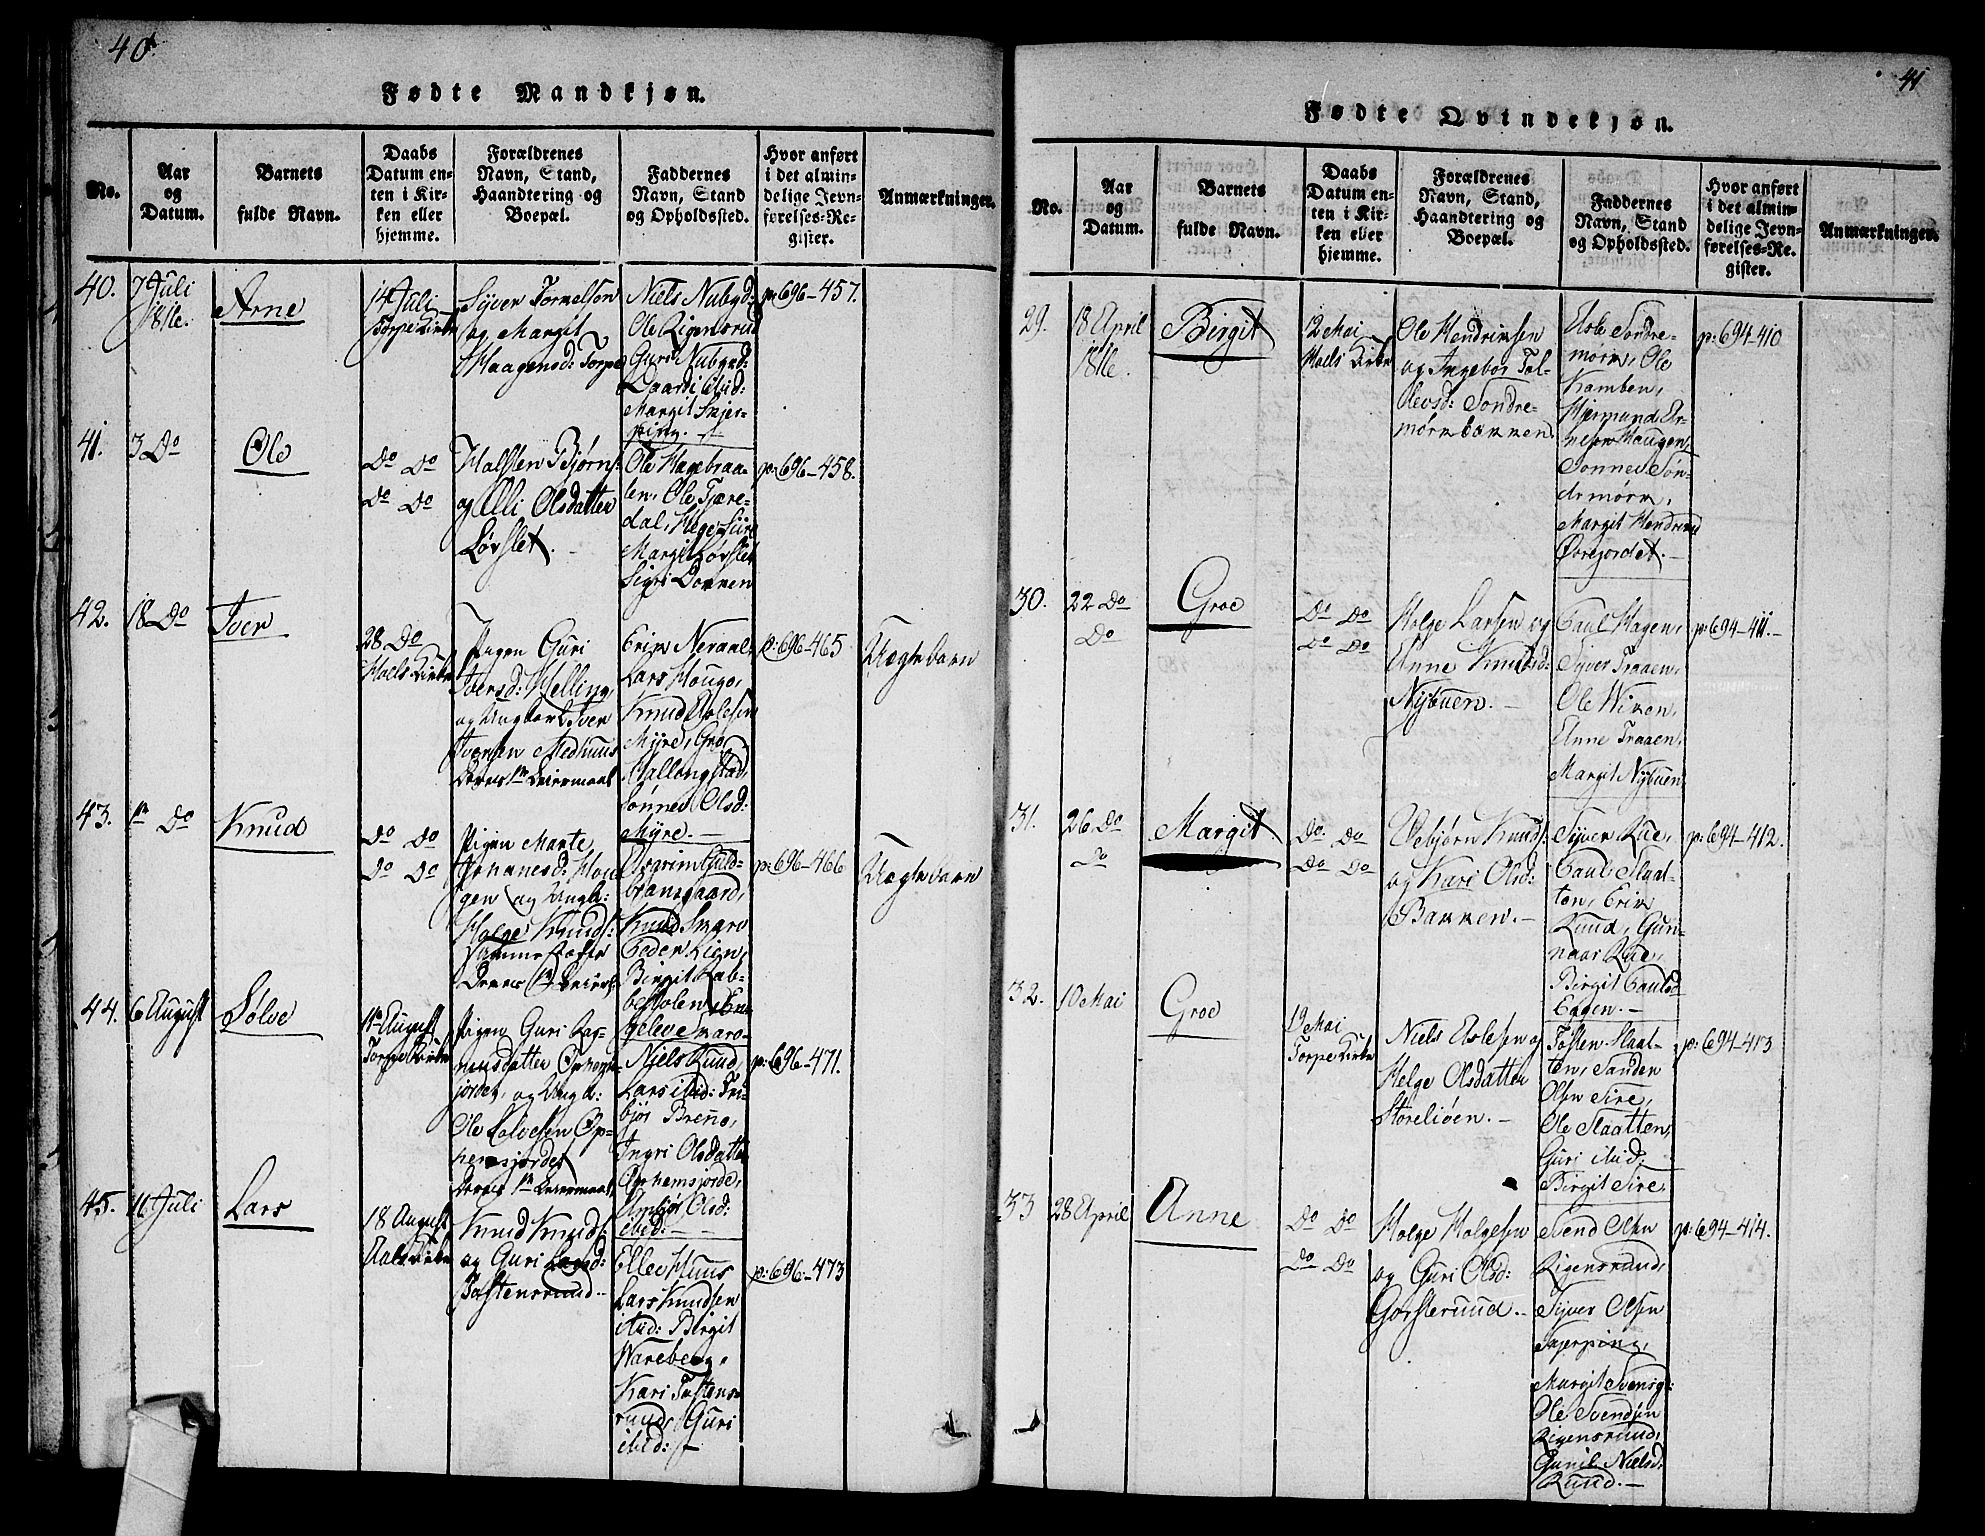 40
Fødte Mandkjøn.
No.
Aar
og
Datum.
Barnets
fulde Navn.
Daabs
Datum en-
ten i Kir-
ken eller
hjemme.
Forældrenes
Navn, Stand,
Haandtering og
Boepæl.
Faddernes
Navn, Stand
og Opholdssted.
Hvor anført
i det almin-
delige Jevn-
førelses-Re-
gister.
Anmærkninger.
40.
7 Juli
1816.
Arne
14 Juli
Torpe Kirke
Syver Torkelsen
og Margit
Haagensd: Torpe
Niels Nubgd:
Ole Rigensrud
Guri Nubgd:
ibid:
Margit Skjer-
ping.
p: 696-457.
41.
3 Do
Ole
Do Do
Do Do
Halsten Bjørns:
og Elli Olsdatter
Løvslet.
Ole Hagebraa-
ten, Ole Tjære-
dal, Hege
Margit Løvslet
Sigri Bakken
p: 696-458.
42.
18 Do
Iver
28 Do
Hoels Kirke
Pigen Guri
Iversd: Helling,
og Ungkarl Iver
Iversen Medhuus
Deres 1te Leiermaal
Erik Neraal,
Lars Houge,
Knud Aslesen
Myre, Gro
Hallengstad,
Sønnev Olsd:
Myre.
p: 696-465
Uægte barn
43.
Do
Knud
Do Do
Do Do
Pigen Marte
Johanesd: Hou-
gen og Ungk:
Helge Knuds:
samme stæds
Deres 1te Leierm:
Asgrim Guld-
bransgaard,
Knud
Peder Lien,
Birgit Lab-
p: 696-466
Uægte barn
44.
6 August
Sølve
11 August
Torpe Kirke
Pigen Guri Las-
musdatter Ophems-
jordet, og Ungk:
Ole Sølvesen Op-
hemsjordet
Deres 1te Leiermaal
Niels Ruud,
Lars ibid: Tri-
bjør Brenno,
Ingri Olsdatter
Ophemsjorde,
Ambjør Olsd:
ibid:
p: 696-471.
45.
11 Juli
Lars
18 August
Aals Kirke
Knud Knuds:
og Guri Larsd:
Tostensruud
Ellev Huus
Lars Knudsen
ibid: Birgit
Wareberg,
Kari Tostens-
ruud, Guri
ibid:
p: 696-473
41
Fødte Qvindekjøn.
No.
Aar
og
Datum.
Barnets
fulde Navn.
Daabs
Datum en-
ten i Kir-
ken eller
hjemme.
Forældrenes
Navn, Stand,
Haandtering og
Boepæl.
Faddernes
Navn, Stand
og Opholdssted.
Hvor anført
i det almin-
delige Jevn-
førelses-Re-
gister.
Anmærkninger.
29.
18 April
1816.
Birgit
12 Mai
Hoels Kirke
Ole Hendriksen
og Ingebor Tol-
levsd: Søndre-
mørkbakken
Asle Søndre-
mørk, Ole
Kamben,
Hermund Ar-
nesen Haugen
Sønnev Søn-
dremørk,
Margit Hendriksd
Øvrejordet.
p: 694-410
30.
22 Do
Do
Groe
Do Do
Do Do
Helge Larsen og
Anne Knudsd:
Nybuen.
Paul Hagen,
Syver Traaen,
Ole Wiken,
Anne Traaen,
Margit Nybuen
p: 694-411.
31.
26 Do
Do
Margit
Do Do
Do Do
Vebjørn Knuds:
og Kari Olsd:
Bakken.
Syver Rue,
Paul Slaat-
ten, Erik
Ruud, Gun-
naar Rue,
Birgit Paulsd
Eggen.
p: 694-412.
32.
10 Mai
Groe
19 Mai
Torpe Kirke
Niels Aslesen og
Helge Olsdatter
Storeliøen.
Tosten Slaat-
ten, Sander
Olsen Sire,
Ole Slaatten,
Guri ibid:
Birgit Sire,
p: 694-413
33
28 April
Anne
Do Do
Do Do
Helge Helgesen
og Guri Olsd:
Golsteruud.
Svend Olsen
Rigensruud,
Syver Olsen
Skjerping,
Margit Svensg:
Ole Svendsen
Rigensruud,
Gunil Nielsd:
Ruud.
p: 694-414.